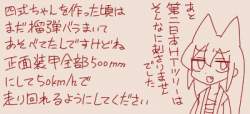 四式ちゃんを作った頃は
まだ榴弾バラまいて
あそべてたしですけどね
正面装甲全部500mm
にして50km/hで
走り回れるようにしてください
あと
第二日本HTツリーは
そんなに刺さりませ
んでした